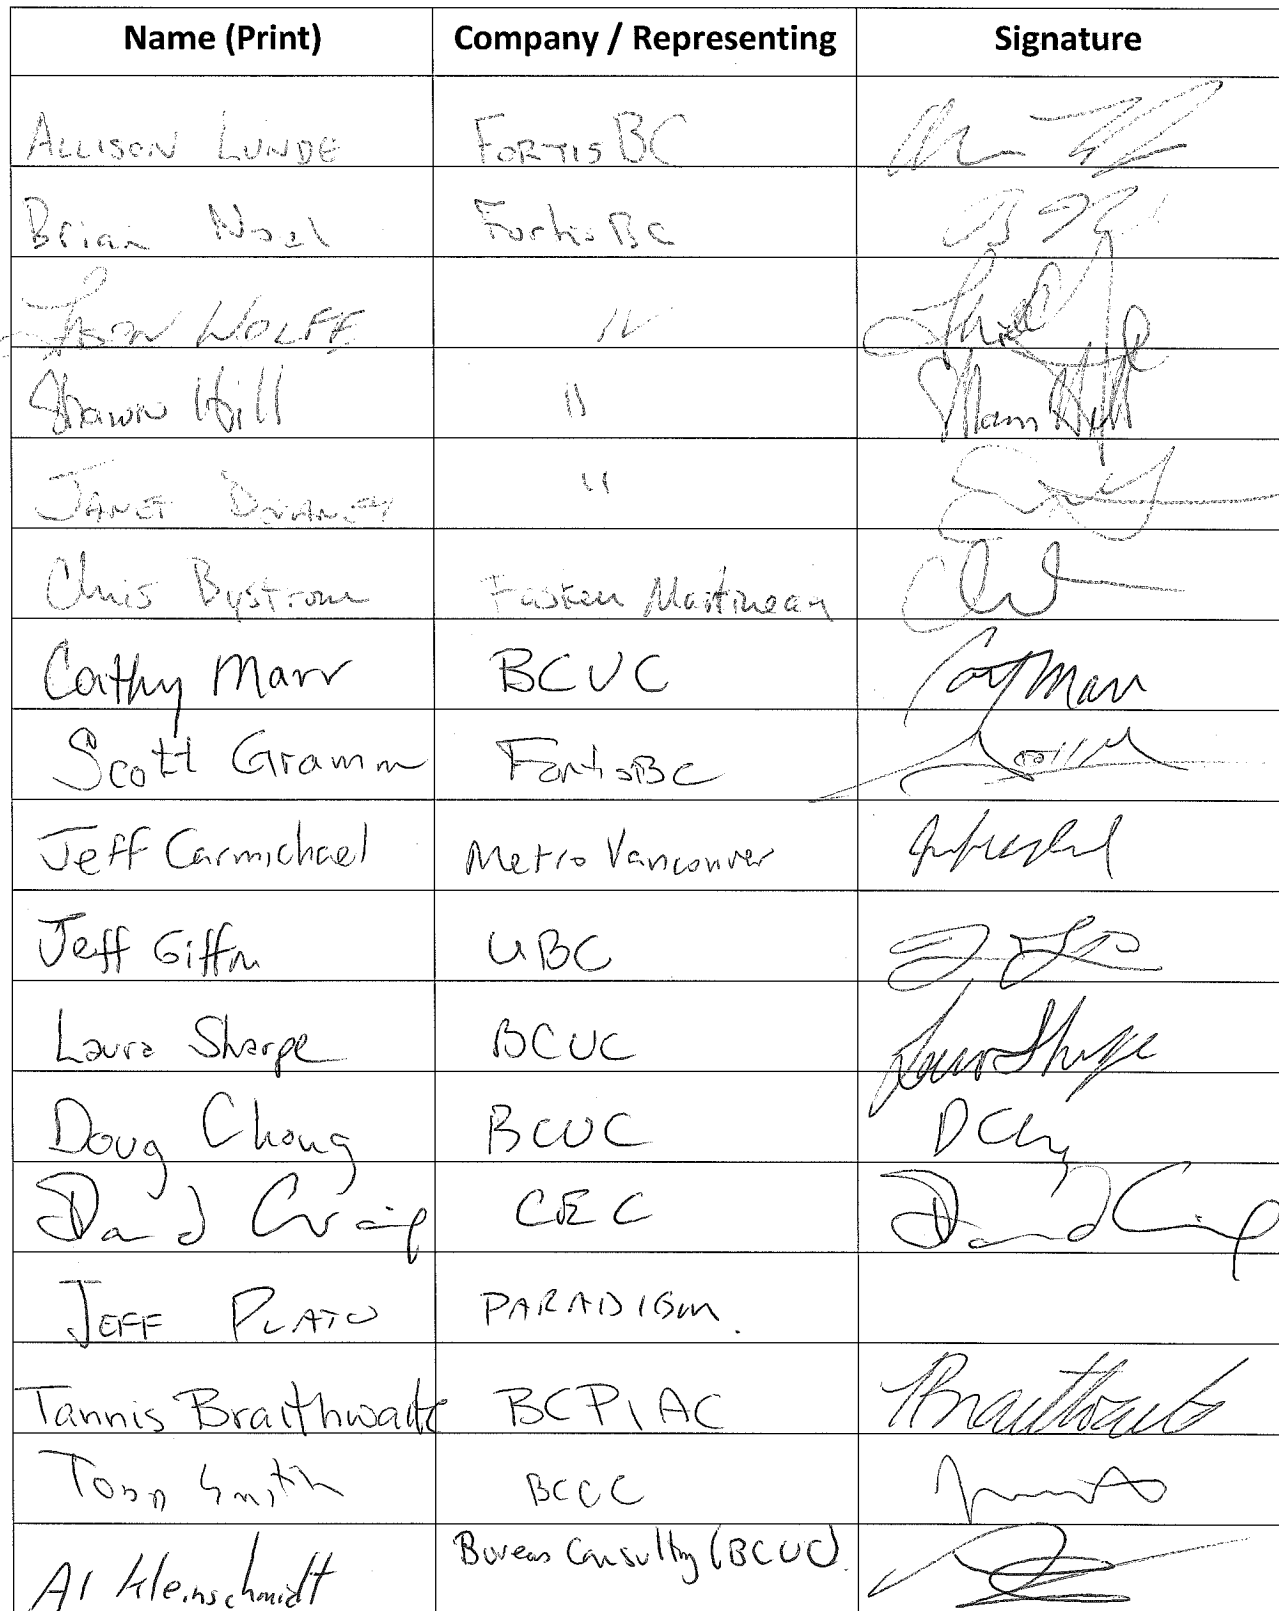 Name (Print) Company / Representing Signature
ALLISON LUNDE FORTIS BC
Brian Noel FortisBC
JASON WOLFF "
Shawn Hill " Shawn Hill
JANET "
Chris Bystrom Fasken Martineau
Cathy Marr BCUC Marr
Scott Gramm FortisBC
Jeff Carmichael Metro Vancouver
Jeff Giffin UBC
Laura Sharpe BCUC Laura Sharpe
Doug Chong BCUC D Chg
David Craig CEC David Craig
JEFF PLATO PARADIGM.
Tannis Braithwaite BCPIAC TBraithwaite
TODD Smith BCUC
Al Kleinschmidt Boreas Consulting (BCUC).